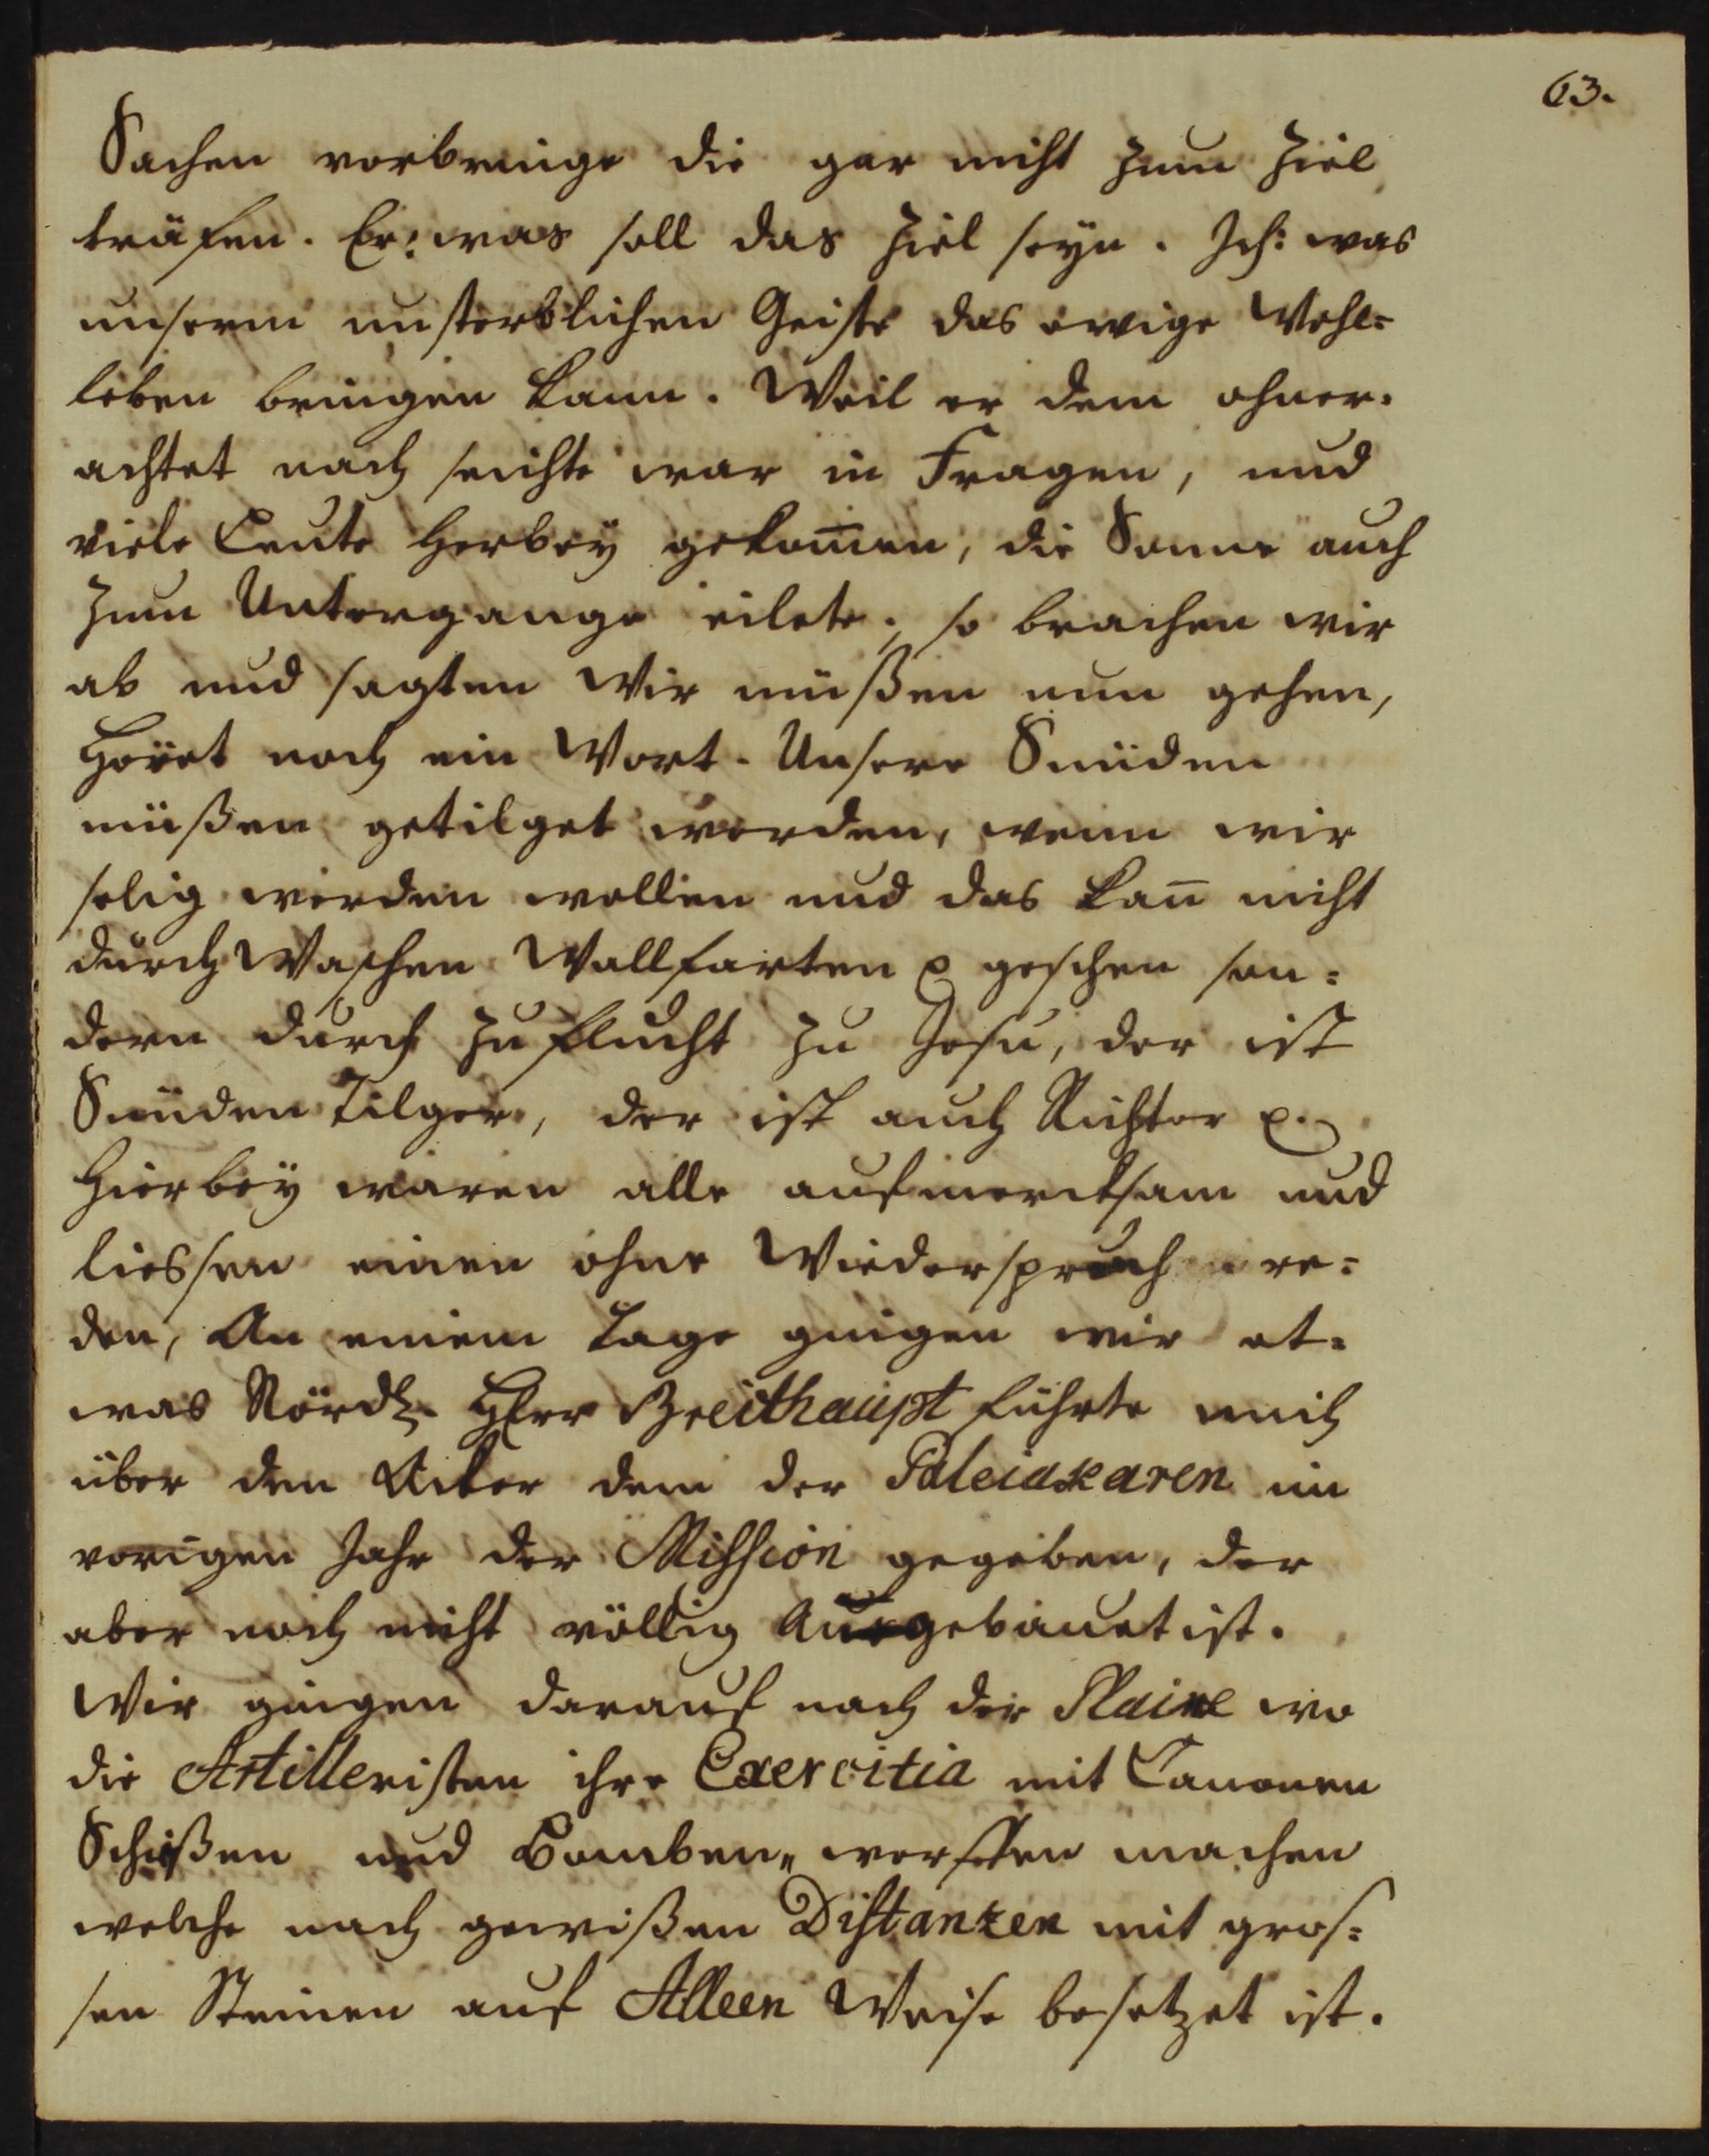 63.
Sachen vorbringe die gar nicht zum Ziel
träfen. Er: was soll das Ziel seyn. Ich: was
unserm unsterblichen Geiste das ewige Wohl=
leben bringen kann. Weil er dem ohner=
achtet nach seichte war in Fragen, und
viele Leute herbey gekom̄en, die Sonne auch
zum Untergange eilete; so brachen wir
ab und sagten Wir müßen nun gehen,
Höret noch ein Wort. Unsere Sünden
müßen getilget werden, wenn wir
selig werden wollen und das kan̄ nicht
durch Waschen Wallfarten p geschehen son=
dern durch Zuflucht zu Jesu, der ist
Sünden Tilger, der ist auch Richter p.
Hierbey waren alle aufmercksam und
liessen einen ohne Wiederspruch re=
den, An einem Tage gingen wir et=
was Nördl. Herr Breithaupt führte mich
über den Acker den der Paleiakaren im
vorigen Jahr der Mission gegeben, der
aber noch nicht völlig Ausgebauet ist.
Wir gingen darauf nach der Plaine wo
die Artilleristen ihre Exercitia mit Canonen
Schißen und Bomben„ werffen machen
welche nach gewißen Distanzen mit gros=
sen Steinen auf Alleen Weise besetzet ist.